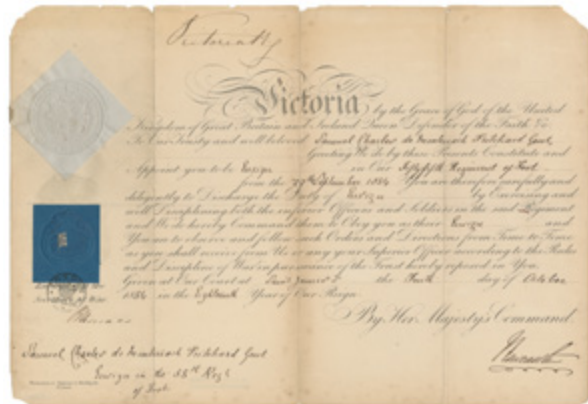 Victoria
Victoria by the Grace of God of the United
Kingdom of Great Britain and Ireland Queen Defender of the Faith &c
To Our Trusty and well beloved Samuel Charles de Gent
Greeting We do by these Presents Constitute and
Appoint you to be Ensign in Our Regiment of Foot
from the September 1854 You are therefore carefully and
diligently to Discharge the Duty of Ensign by Exercising and
well Disciplining both the inferior Officers and Soldiers in the said Regiment
and We do hereby Command them to Obey you as their Ensign and
You are to observe and follow such Orders and Directions from Time to Time
as you shall receive from Us or any your Superior Officer according to the Rules
and Discipline of War in pursuance of the Trust hereby reposed in You
Given at Our Court at the day of October
1854 in the Eighteenth Year of Our Reign
By Her Majesty's Command
Samuel Charles de Gent
Ensign in the Regt
of Foot